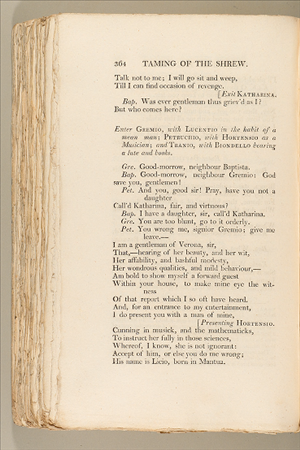 364 TAMING OF THE SHREW.
Talk not to me; I will go sit and weep,
Till I can find occasion of revenge.
[Exit KATHARINA.
Bap. Was ever gentleman thus griev'd as I?
But who comes here?
Enter GREMIO, with LUCENTIO in the habit of a
mean man; PETRUCHIO, with HORTENSIO as a
Musician; and TRANIO, with BIONDELLO bearing
a lute and books.
Gre. Good-morrow, neighbour Baptista.
Bap. Good-morrow, neighbour Gremio: God
save you, gentlemen!
Pet. And you, good sir! Pray, have you not a
daughter
Call'd Katharina, fair, and virtuous?
Bap. I have a daughter, sir, call'd Katharina.
Gre. You are too blunt, go to it orderly.
Pet. You wrong me, signior Gremio; give me
leave.—
I am a gentleman of Verona, sir,
That,—hearing of her beauty, and her wit,
Her affability, and bashful modesty,
Her wondrous qualities, and mild behaviour,—
Am bold to show myself a forward guest
Within your house, to make mine eye the wit-
ness
Of that report which I so oft have heard.
And, for an entrance to my entertainment,
I do present you with a man of mine,
[Presenting HORTENSIO.
Cunning in musick, and the mathematicks,
To instruct her fully in those sciences,
Whereof, I know, she is not ignorant:
Accept of him, or else you do me wrong;
His name is Licio, born in Mantua.